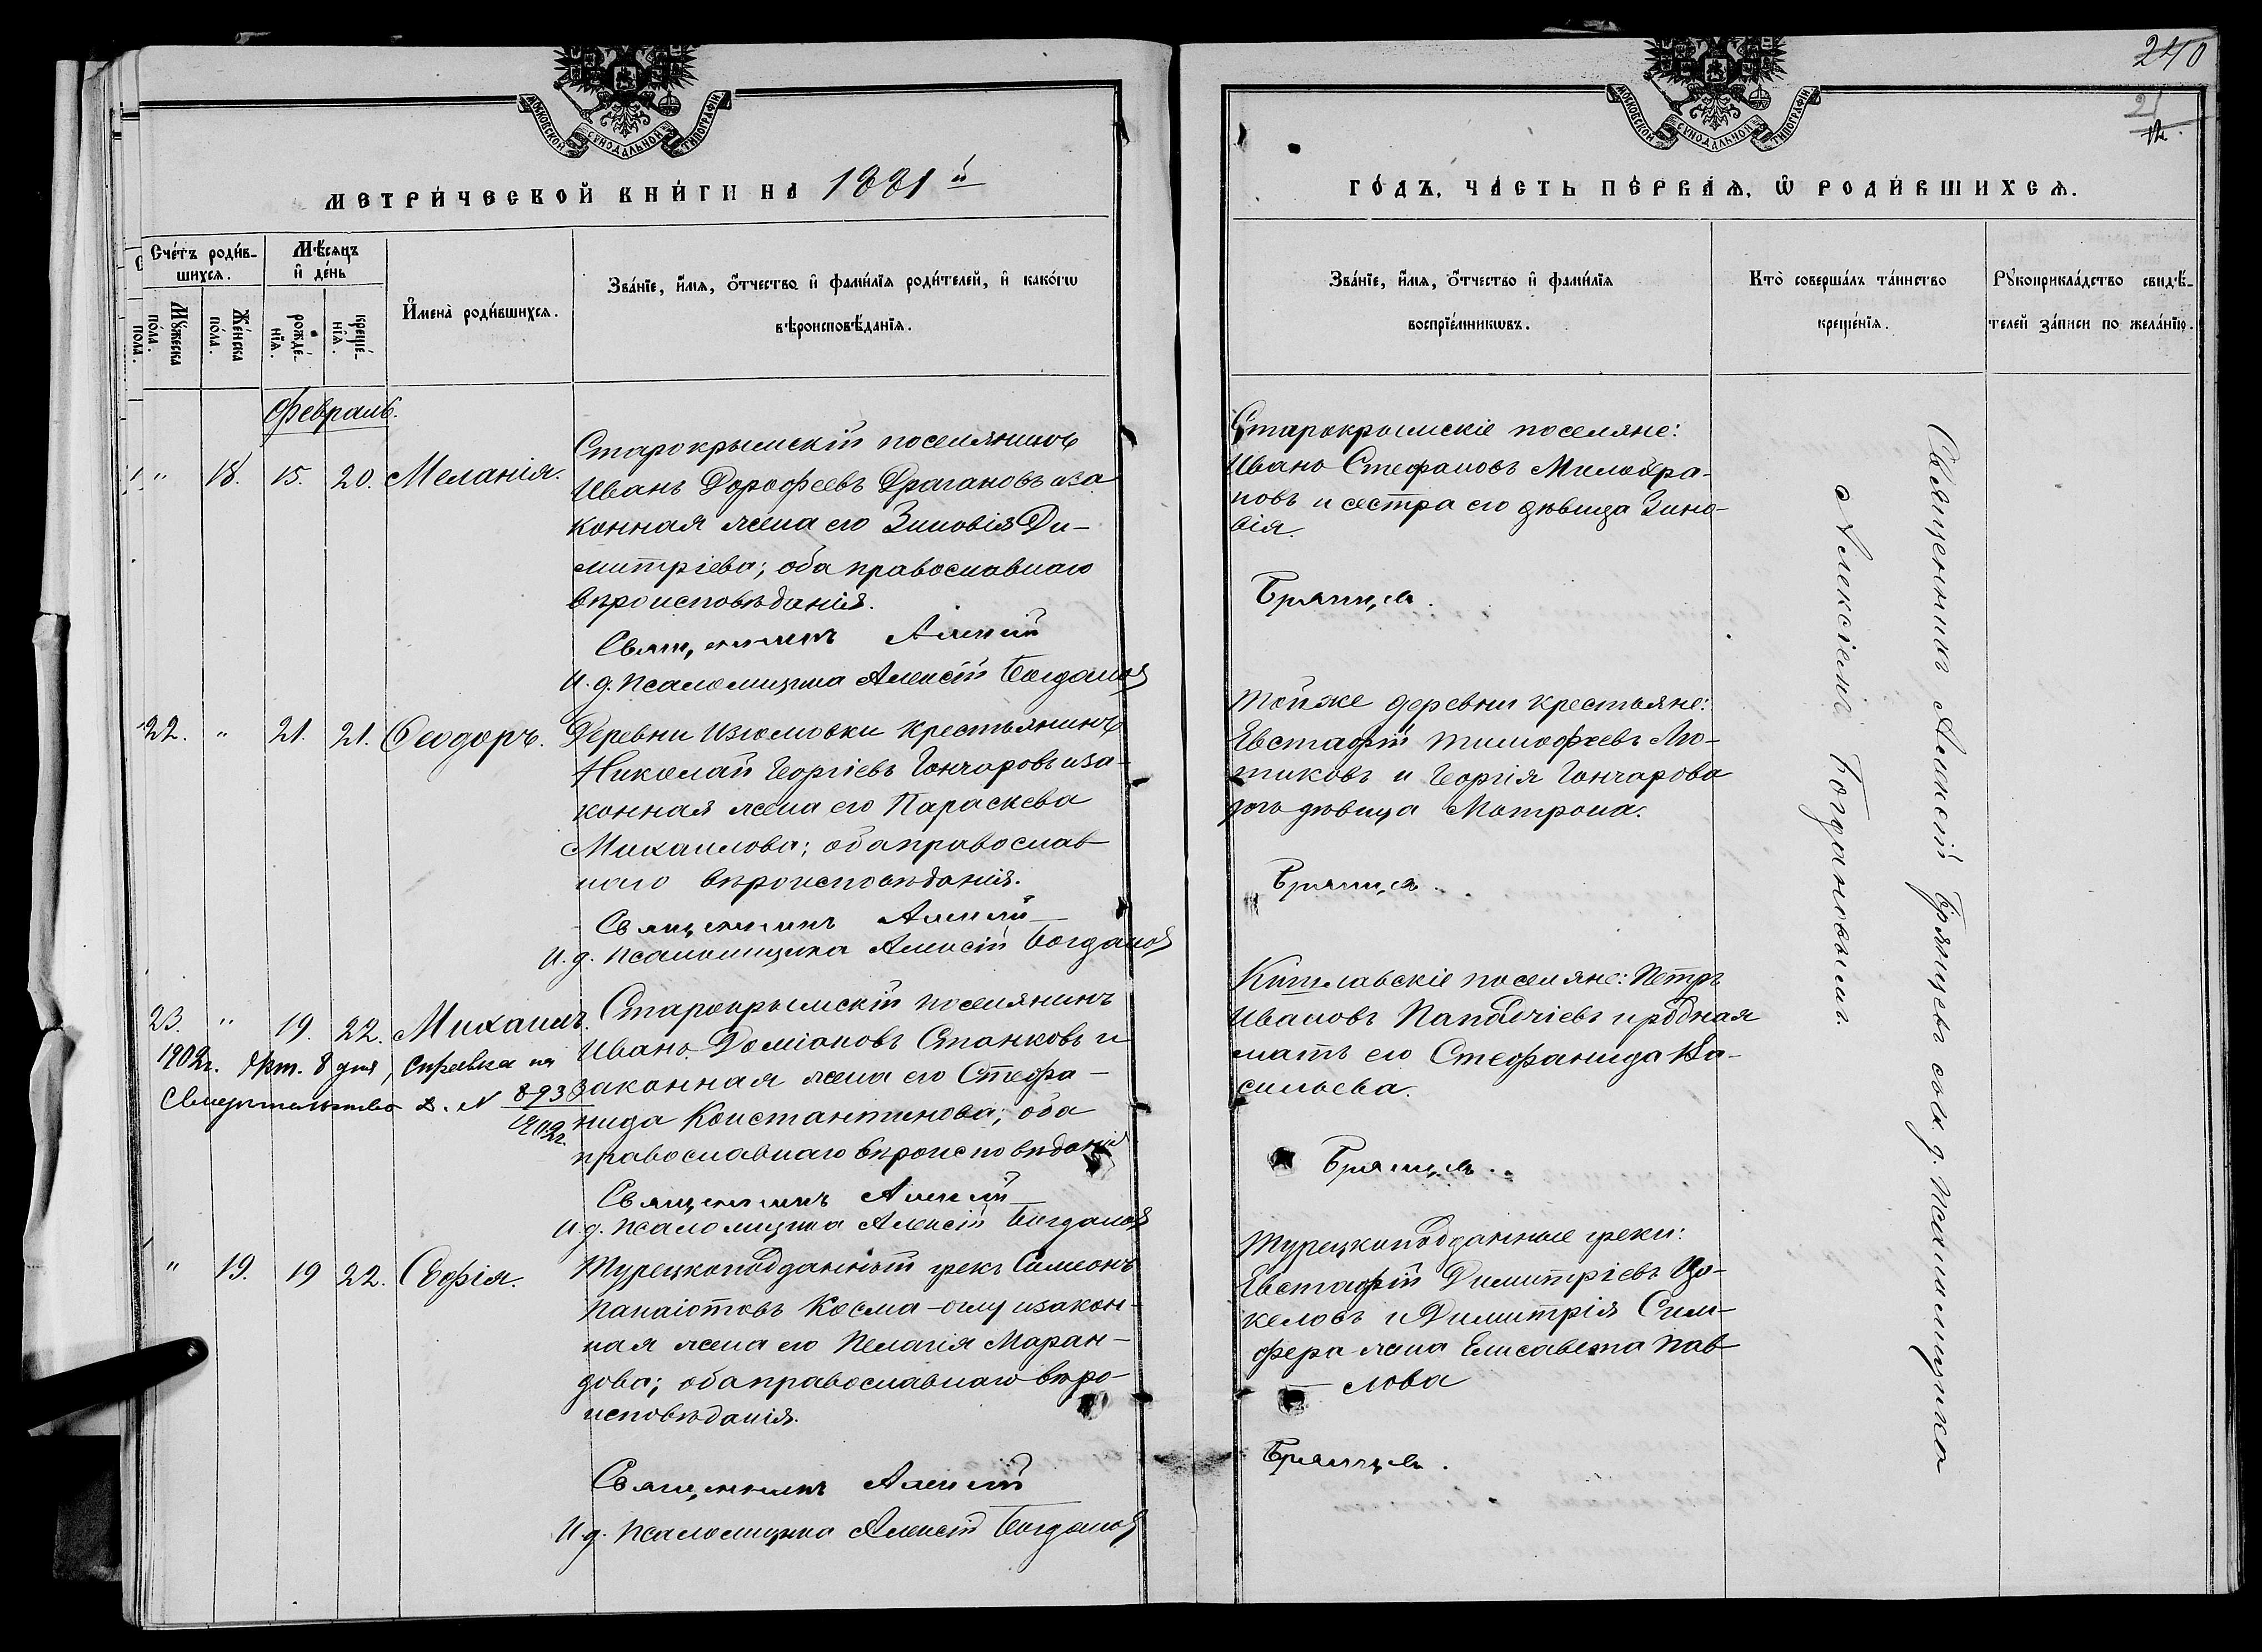 240
21
12.
МОСКОВСКОЙ СѴНОДАЛЬНОЙ ТИПОГРАФІИ
МОСКОВСКОЙ СѴНОДАЛЬНОЙ ТИПОГРАФІИ
МЕТРИ́ЧЕСКОЙ КНИ́ГИ НА 1881й
ГО́ДЪ, ЧА́СТЬ ПЕ́РВАѦ, Ѡ҆ РОДИ́ВШИХСѦ.
Сче́тъ роди́в-
шихсѧ.
Мꙋ́жеска по́ла.
Же́нска по́ла.
Мѣ́сѧцъ и҆ де́нь
рожде́-нїѧ.
креще́-нїѧ.
И҆мена̀ роди́вшихсѧ.
Зва́нїе, и҆́мѧ, ѻ҆́тчество и҆ фами́лїѧ роди́телей, и҆ како́гѡ
вѣроисповѣ́данїѧ.
Зва́нїе, и҆́мѧ, ѻ҆́тчество и҆ фами́лїѧ
воспрїе́мникѡвъ.
Кто̀ соверша́лъ та́инство
креще́нїѧ.
Рꙋкоприкла́дство свидѣ́-
телей за́писи по жела́нїю.
Февраль.
" 18. 15. 20. Меланія.
Старокрымскій поселянинъ
Иванъ Дорофеевъ Драгановъ и за
конная жена его Зиновія Ди-
митріева; оба православнаго
вѣроисповѣданія.
Священникъ Алексій
И. д. псаломщика Алексій Богданов
Старокрымскіе поселяне:
Иванъ Стефановъ Милобра-
новъ и сестра его дѣвица Зино-
вія.
Брянцев.
22. " 21. 21. Ѳеодоръ.
Деревни Изюмовки крестьянинъ
Николай Георгіевъ Гончаровъ и за-
конная жена его Параскева
Михаилова; оба православ
наго вѣроисповѣданія.
Священникъ Алексій
И. д. псаломщика Алексій Богданов
Тойже деревни крестьяне:
Евстафій Тимофеевъ Лю-
тиковъ и Георгія Гончарова
дочь дѣвица Матрона.
Брянцев.
23. " 19. 22. Михаилъ.
1902г. Окт. 8 дня, справка на
Свидетельство з. N 893
1902г.
Старокрымскій поселянинъ
Иванъ Доміановъ Станковъ и
законная жена его Стефа-
нида Константинова; оба
православнаго вѣроисповѣданія
Священникъ Алексій
И. д. псаломщика Алексій Богданов
Кишлавскіе поселяне: Петръ
Ивановъ Папазчіевъ и родная
мать его Стефанида Ва-
сильева.
Брянцев.
" 19. 19 22. Софія.
Турецкоподданный грекъ Симеонъ
Панаіотовъ Косма-оглу и закон-
ная жена его Пелагія Маран-
дова; оба православнаго вѣро-
исповѣданія.
Священникъ Алексій
И. д. псаломщика Алексій Богданов
Турецкоподданные греки:
Евстафій Димитріевъ
келовъ и Димитрія Сим-
фера жена Елисавета Пав
лова
Брянцев.
Священникъ Алексій Брянцевъ съ и. д. псаломщика
Алексіемъ Богдановымъ.